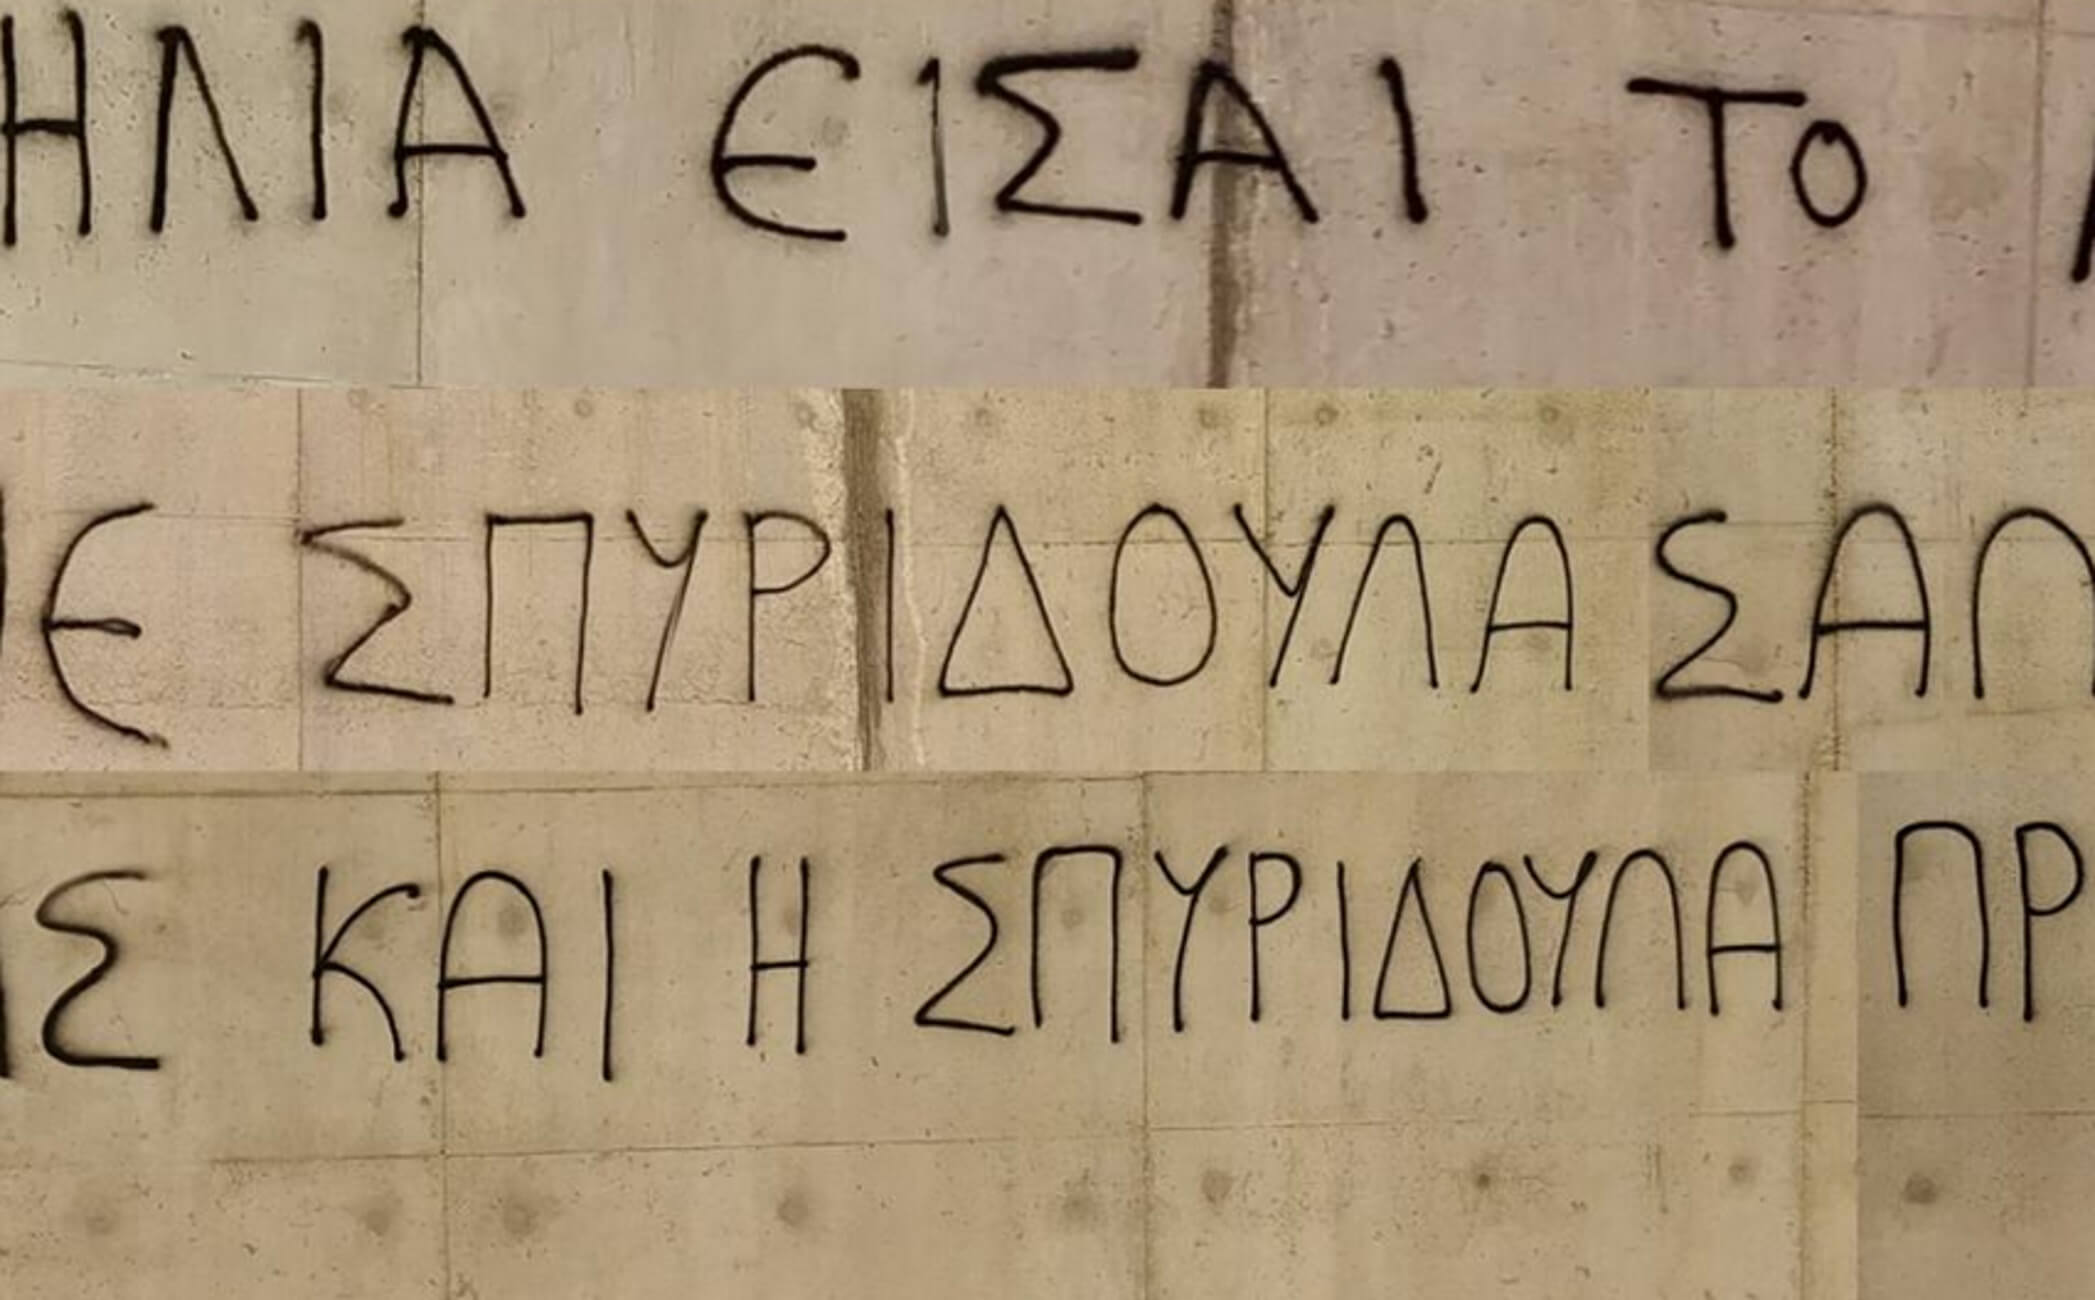 ΗΛΙΑ ΕΙΣΑΙ ΤΟ
ΣΠΥΡΙΔΟΥΛΑ
ΚΑΙ Η ΣΠΥΡΙΔΟΥΛΑ